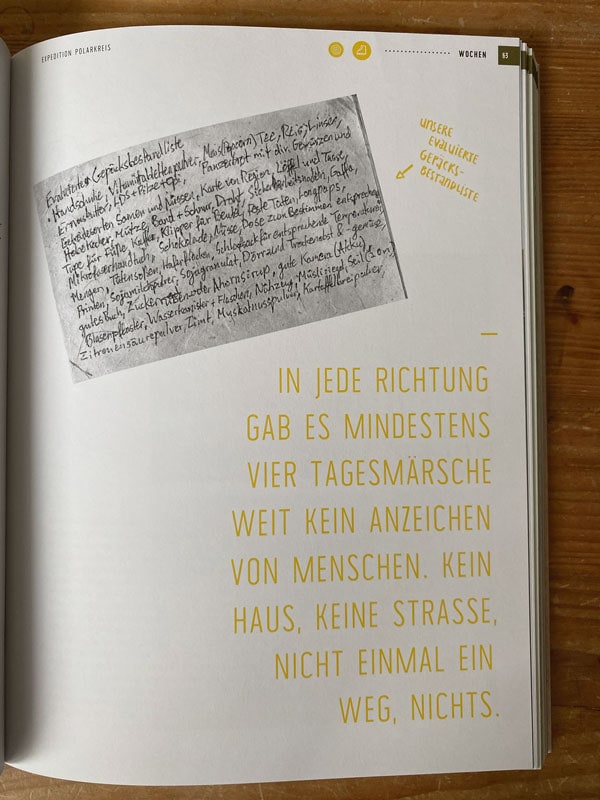 EXPEDITION POLARKREIS
WOCHEN 69
UNSERE
EVALUIERTE
GEPÄCKS-
BESTANDLISTE
Evaluierte Gepäcksbestandliste
Handschuhe, Vitamintabletten Tee, Reis, Linsen,
Erdnussbutter, Pilze + Panzerbox mit div. Gewürzen und
Getreidesorten Samen und Nüssen, Karte von Region, Löffel und Tasse,
Mütze, Band + Schnur, Draht, Sicherheitsnadeln, Gaffa,
Tape für Füße, Kaffee, Klipper für Beutel, Rote
Mikrofaserhandtuch, Schokolade, Nüsse, Dose zum Bestimmen
Mengen, Schlafsack für entsprechende Temperaturen,
Sojamilchpulver, Sojagranulat, Dörr und Trockenobst & -gemüse,
gutes Buch, Zucker Ahornsirup, gute Kamera (Akku)
Blasenpflaster, Wasserkanister + Flaschen, Nähzeug, Müsliriegel, Seil
Zitronensäurepulver, Zimt, Muskatnusspulver, Kartoffelbreipulver
IN JEDE RICHTUNG
GAB ES MINDESTENS
VIER TAGESMÄRSCHE
WEIT KEIN ANZEICHEN
VON MENSCHEN. KEIN
HAUS, KEINE STRASSE,
NICHT EINMAL EIN
WEG, NICHTS.